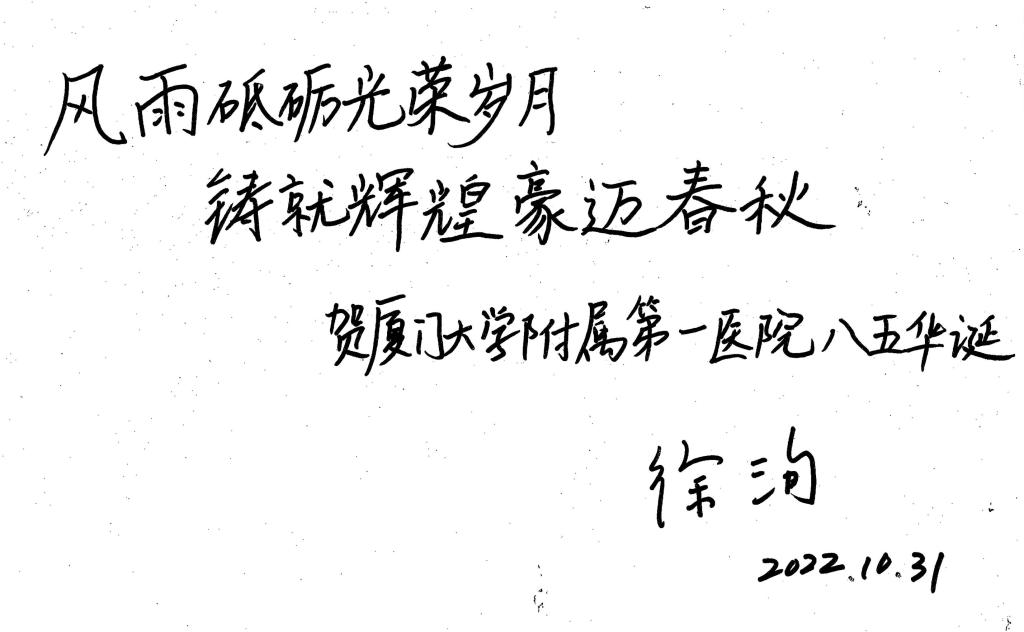 风雨砥砺光荣岁月
铸就辉煌豪迈春秋
贺厦门大学附属第一医院八五华诞
徐洵
2022.10.31